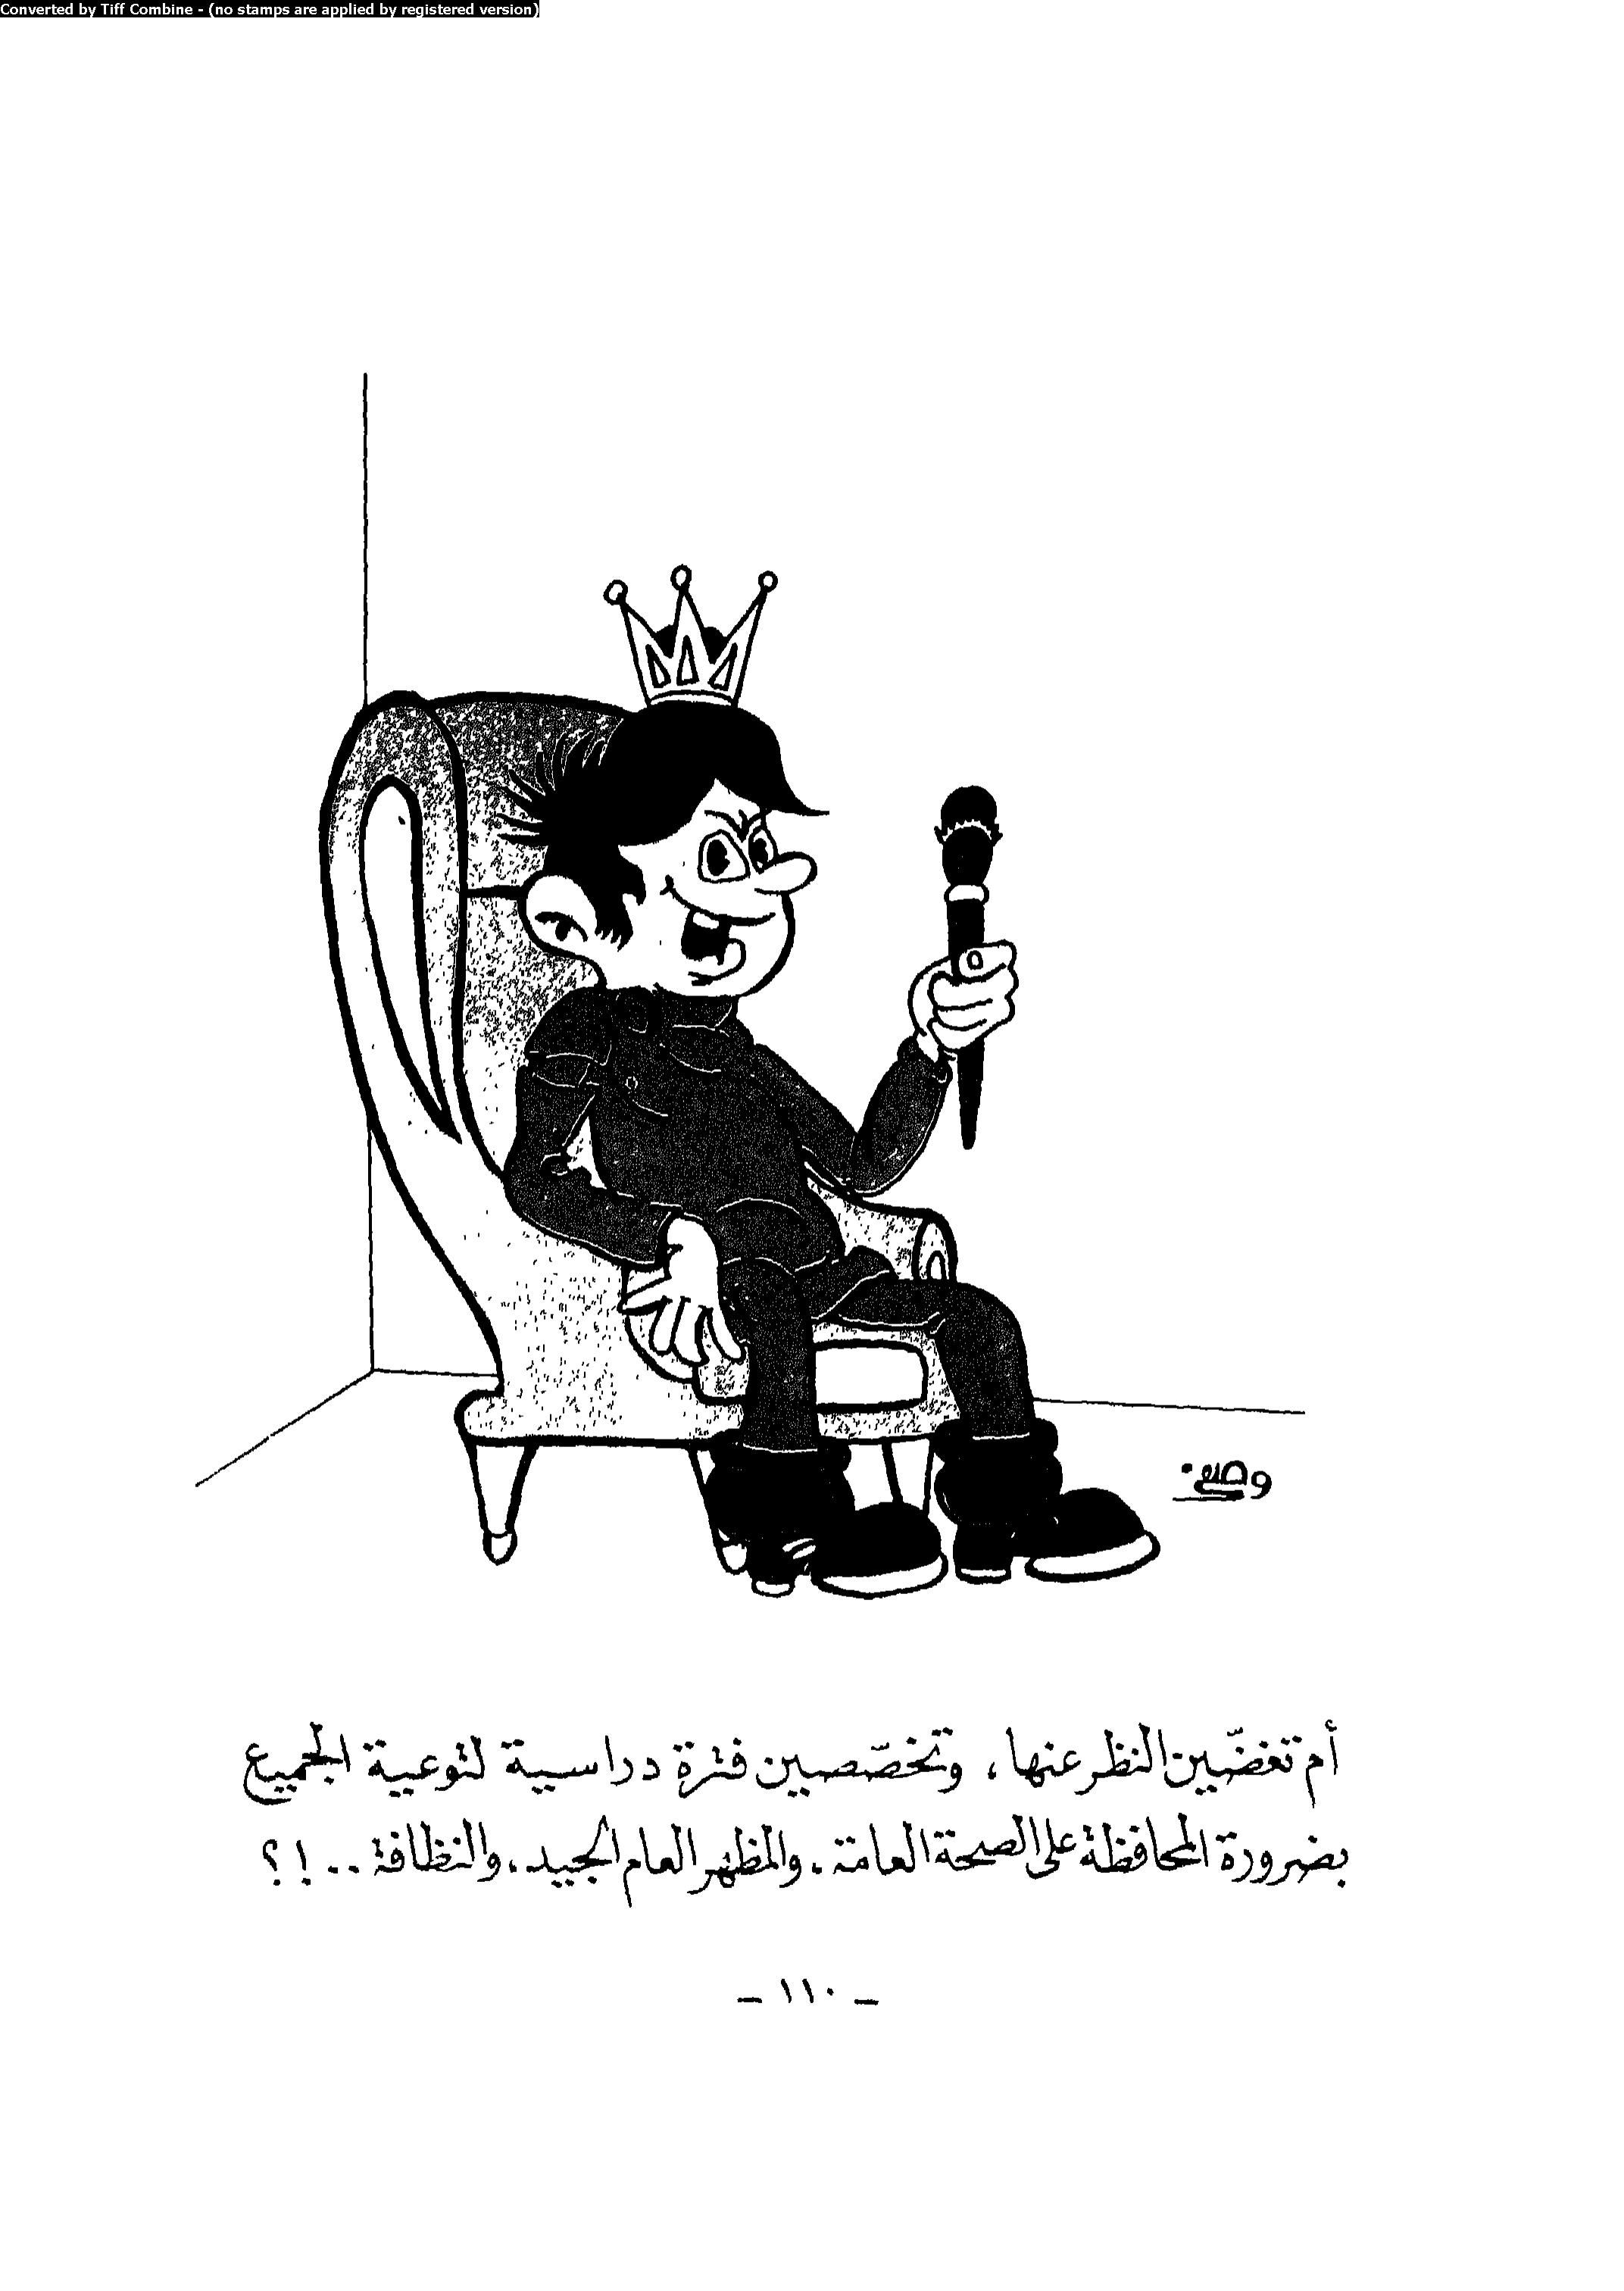 Converted by Tiff Combine - (no stamps are applied by registered version)
أم تغضّين النظر عنها، وتخصّصين فترة دراسية لتوعية الجميع
بضرورة المحافظة على الصحة العامة، والمظهر العام الجيد، والنظافة..!؟
- ١١٠ -